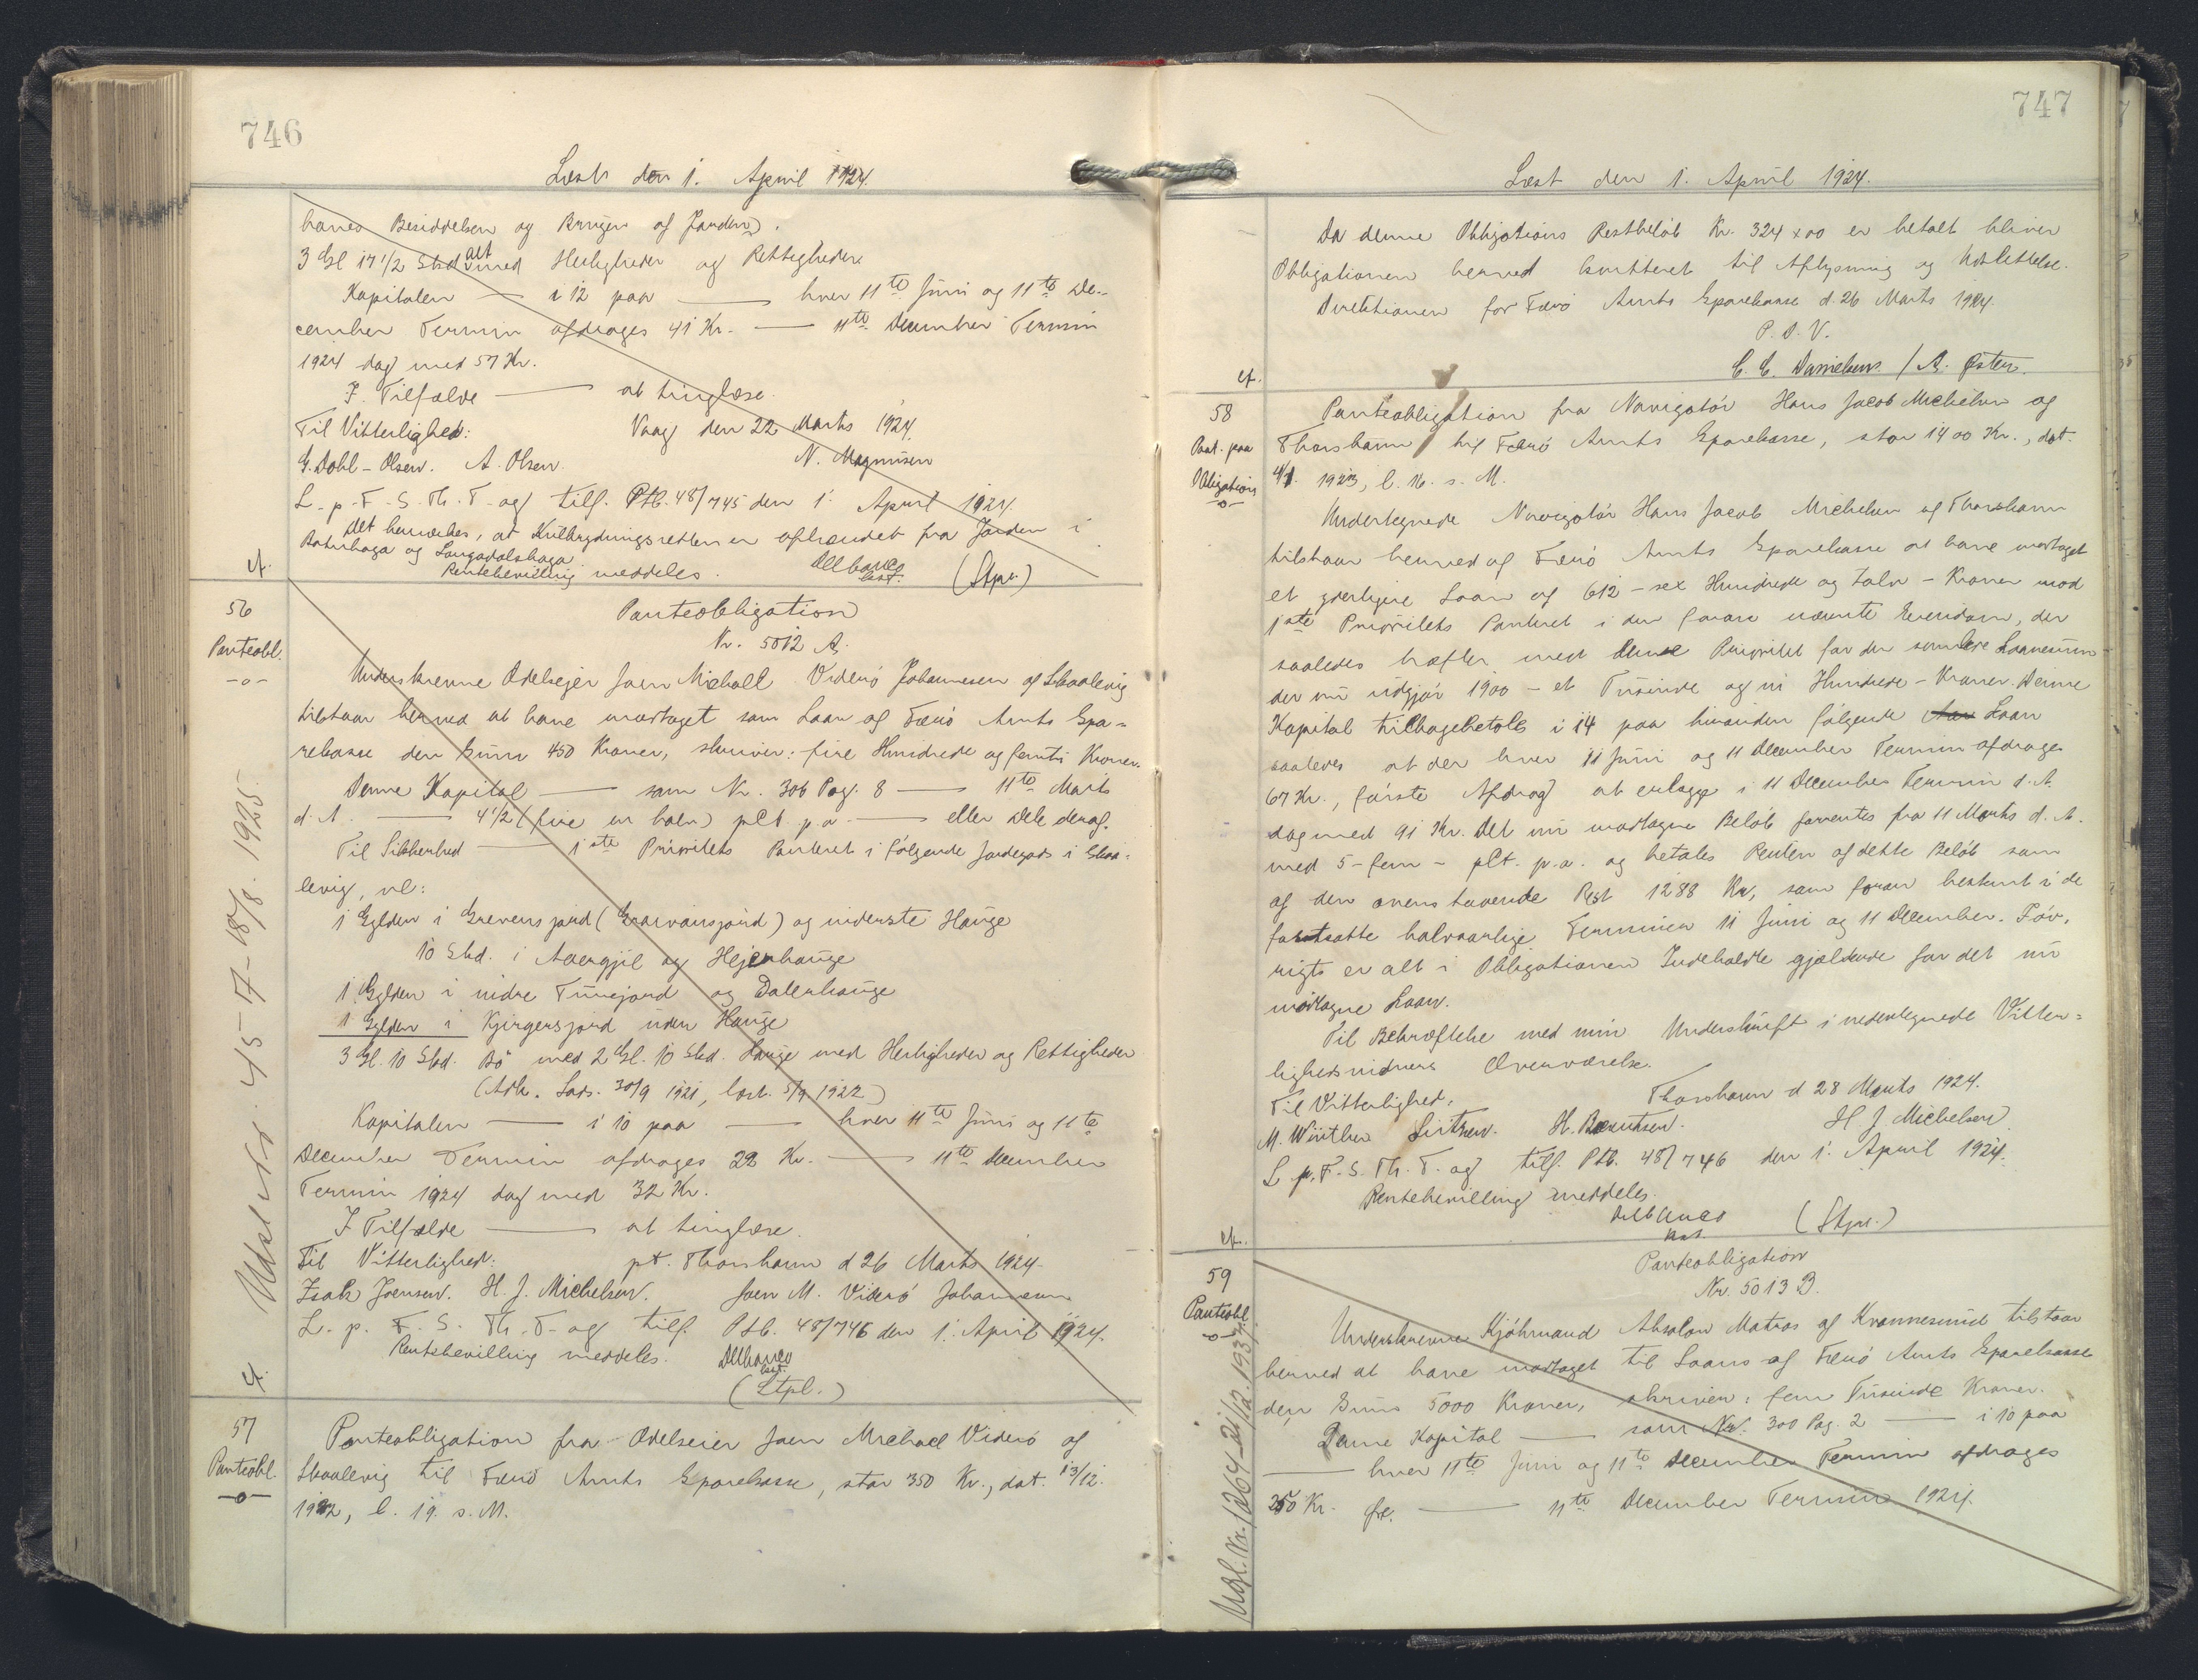 746
Læst den 1. April 1924.
hans Besiddelsen og Brugen af Jorden).
3 Gl 17 1/2 Skd alt med Herligheder og Rettigheder
Kapitalen — i 12 paa — hver 11te Juni og 11te De-
cember Termin afdrages 41 Kr. — 11te December Termin
1924 dog med 57 Kr.
I Tilfælde — at tinglæse.
Til Vitterlighed: Vaag den 22 Marts 1924.
G. Dahl-Olsen. A. Olsen. N. Magnussen
L. p. F. S. Th. T. og tilf. Ptb. 48/745 den 1. April 1924.
Det bemærkes, at Kulbrydningsretten er afhændet fra Jorden i
Botnhaga og Langadalshaga.
Rentebevilling meddeles. Dellbanco
kst. (Stpl.)
cf.
56
Panteobl.
-o-
Panteobligation
Nr. 5012 A.
Underskrevne Odelsejer Joen Michall Viderö Johannesen af Skaalevig
tilstaar herved at have modtaget som Laan af Færö Amts Spa-
rekasse den Sum 450 Kroner, skriver: fire Hundrede og femti Kroner.
Denne Kapital — som Nr. 306 Pag. 8 — 11te Marts
d. A. — 4 1/2 (fire en halv) pCt. p. a. — eller Dele deraf.
Til Sikkerhed — 1ste Prioritets Panteret i følgende Jordegods i Skaa-
levig, nl:
1 Gylden i Grevens jord (Grarvansjord) og inderste Hauge
10 Skd. i Aaergjil og Hejenhauge
1 Gylden i nidre Túnejord og Dalenhauge
1 Gylden i Kjirgersjord uden Hauge
3 Gl. 10 Skd. Bö med 2 Gl. 10 Skd. Hauge med Herligheder og Rettigheder
(Adk. Lods. 30/9 1921, læst. 5/9 1922)
Kapitalen — i 10 paa — hver 11te Juni og 11te
December Termin afdrages 22 Kr. — 11te December
Termin 1924 dog med 32 Kr.
I Tilfælde — at tinglæse.
Til Vitterlighed: pt. Thorshavn d 26 Marts 1924.
Isak Joensen. H. J. Michelsen. Joen M. Viderö Johannesen
L. p. F. S. Th. T. og tilf. Ptb. 48/746 den 1. April 1924.
Rentebevilling meddeles. Dellbanco
kst.
(Stpl.)
cf.
Udslettet 45-17-18/8. 1925.
57
Panteobl.
-o-
Panteobligation fra Odelseier Joen Michael Viderö af
Skaalevig til Færö Amts Sparekasse, stor 350 Kr., dat. 13/12.
1922, l. 19. s. M.
747
Læst den 1. April 1924.
Da denne Obligations Restbeløb Kr. 324 x 00 er betalt bliver
Obligationen herved kvitteret til Aflysning og Udslettelse.
Direktionen for Færö Amts Sparekasse d. 26 Marts 1924.
P. D. V.
C. C. Danielsen / A. Øster.
cf.
58
Paat. paa
Obligation
-o-
Panteobligation fra Navigatör Hans Jacob Michelsen og
Thorshavn til Færö Amts Sparekasse, stor 1400 Kr., dat.
4/1. 1923, l. 16. s. M.
Undertegnede Navigatör Hans Jacob Michelsen af Thorshavn
tilstaar herved af Færö Amts Sparekasse at have modtaget
et yderligere Laan af 612 - sex Hundrede og Tolv - Kroner mod
1ste Prioritets Panteret i den foran nævnte Ejendom, der
saaledes hæfter med denne Prioritet for den samlede Laanesum
der nu udgjör 1900 - et Tusinde og ni Hundrede - Kroner. Denne
Kapital tilbagebetales i 14 paa hinanden fölgende Aar Laan
saaledes at der hver 11 Juni og 11 December Termin afdrages
67 Kr., förste Afdrag at erlægge i 11 December Termin d. A.
dog med 91 Kr. Det nu modtagne Beløb forrentes fra 11 Marts d. A.
med 5 - fem - pCt. p. a. og betales Renten af dette Beløb som
af den ovenstaaende Rest 1288 Kr, som foran bestemt i de
fastsatte halvaarlige Terminer 11 Juni og 11 December. Föv-
rigt er alt i Obligationen Indeholdte gjældende for det nu
modtagne Laan.
Til Bekræftelse med min Underskrift i nedentegnede Vitter-
lighedsvidners Overværelse.
Til Vitterlighed: Thorshavn d 28 Marts 1924.
M. Winther Lützen. H. Berentsen. H J Michelsen
L. p. F. S. Th. T. og tilf. Ptb. 48/746 den 1. April 1924.
Rentebevilling meddeles.
Dellbanco (Stpl.)
kst.
cf.
59
Panteobl.
-o-
Panteobligation
Nr. 5013 B.
Underskrevne Kjöbmand Absalon Matras af Kvannesund tilstaar
herved at have modtaget til Laans af Færö Amts Sparekasse
den Sum 5000 Kroner, skriver: fem Tusinde Kroner.
Denne Kapital — som Nr. 300 Pag. 2 — i 10 paa
— hver 11te Juni og 11te December Termin afdrages
250 Kr. — 11te December Termin 1924.
Udsl. Nr. 1264-21/12. 1937.